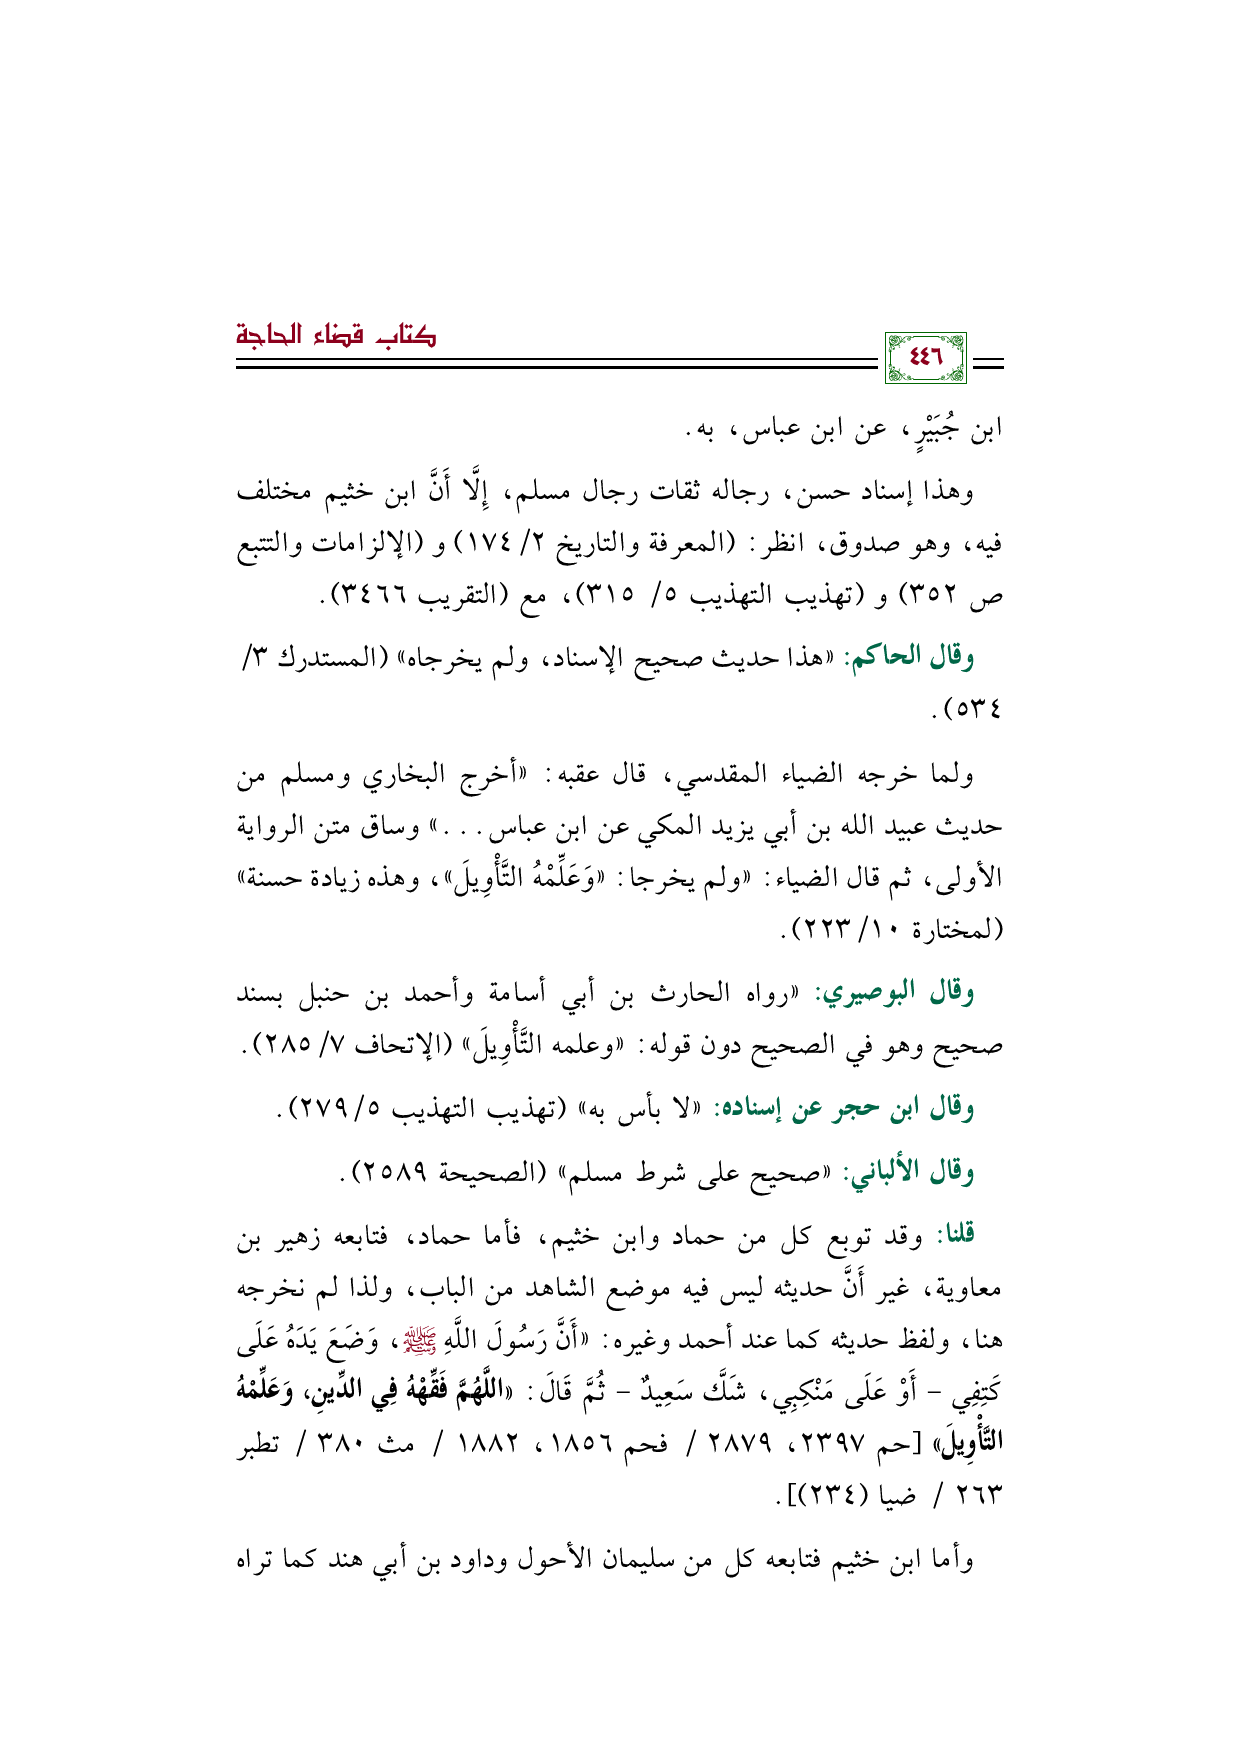 كتاب قضاء الحاجة
٤٤٦
ابن جُبَيْرٍ، عن ابن عباس، به.
وهذا إسناد حسن، رجاله ثقات رجال مسلم، إِلَّا أَنَّ ابن خثيم مختلف
فيه، وهو صدوق، انظر: (المعرفة والتاريخ ٢/ ١٧٤) و (الإلزامات والتتبع
ص ٣٥٢) و (تهذيب التهذيب ٥/ ٣١٥)، مع (التقريب ٣٤٦٦).
وقال الحاكم: «هذا حديث صحيح الإسناد، ولم يخرجاه» (المستدرك ٣/
٥٣٤).
ولما خرجه الضياء المقدسي، قال عقبه: «أخرج البخاري ومسلم من
حديث عبيد الله بن أبي يزيد المكي عن ابن عباس...» وساق متن الرواية
الأولى، ثم قال الضياء: «ولم يخرجا: «وَعَلِّمْهُ التَّأْوِيلَ»، وهذه زيادة حسنة»
(لمختارة ١٠/ ٢٢٣).
وقال البوصيري: «رواه الحارث بن أبي أسامة وأحمد بن حنبل بسند
صحيح وهو في الصحيح دون قوله: «وعلمه التَّأْوِيلَ» (الإتحاف ٧/ ٢٨٥).
وقال ابن حجر عن إسناده: «لا بأس به» (تهذيب التهذيب ٥/ ٢٧٩).
وقال الألباني: «صحيح على شرط مسلم» (الصحيحة ٢٥٨٩).
قلنا: وقد توبع كل من حماد وابن خثيم، فأما حماد، فتابعه زهير بن
معاوية، غير أَنَّ حديثه ليس فيه موضع الشاهد من الباب، ولذا لم نخرجه
هنا، ولفظ حديثه كما عند أحمد وغيره: «أَنَّ رَسُولَ اللَّهِ ﷺ، وَضَعَ يَدَهُ عَلَى
كَتِفِي – أَوْ عَلَى مَنْكِبِي، شَكَّ سَعِيدٌ – ثُمَّ قَالَ: «اللَّهُمَّ فَقِّهْهُ فِي الدِّينِ، وَعَلِّمْهُ
التَّأْوِيلَ» [حم ٢٣٩٧، ٢٨٧٩ / فحم ١٨٥٦، ١٨٨٢ / مث ٣٨٠ / تطبر
٢٦٣ / ضيا (٢٣٤)].
وأما ابن خثيم فتابعه كل من سليمان الأحول وداود بن أبي هند كما تراه